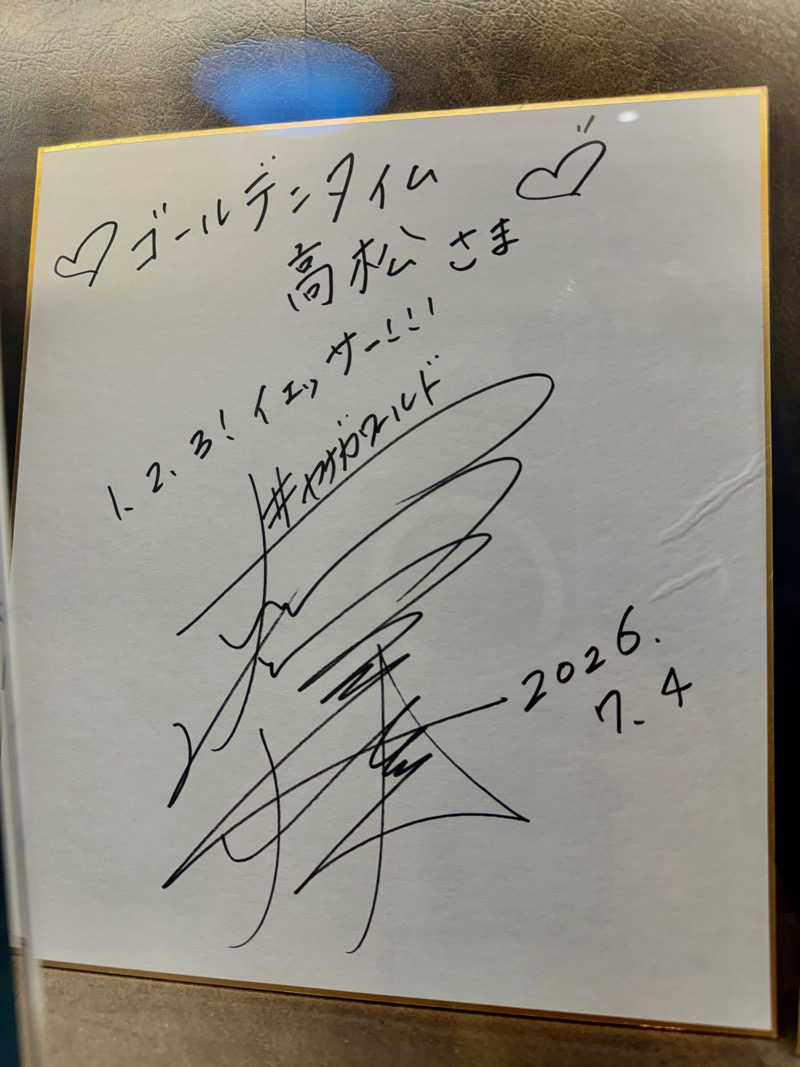 ゴールデンタイム
高松さま
1.2.3!イェッサー!!!
#ヤザガワールド
2026.
7.4